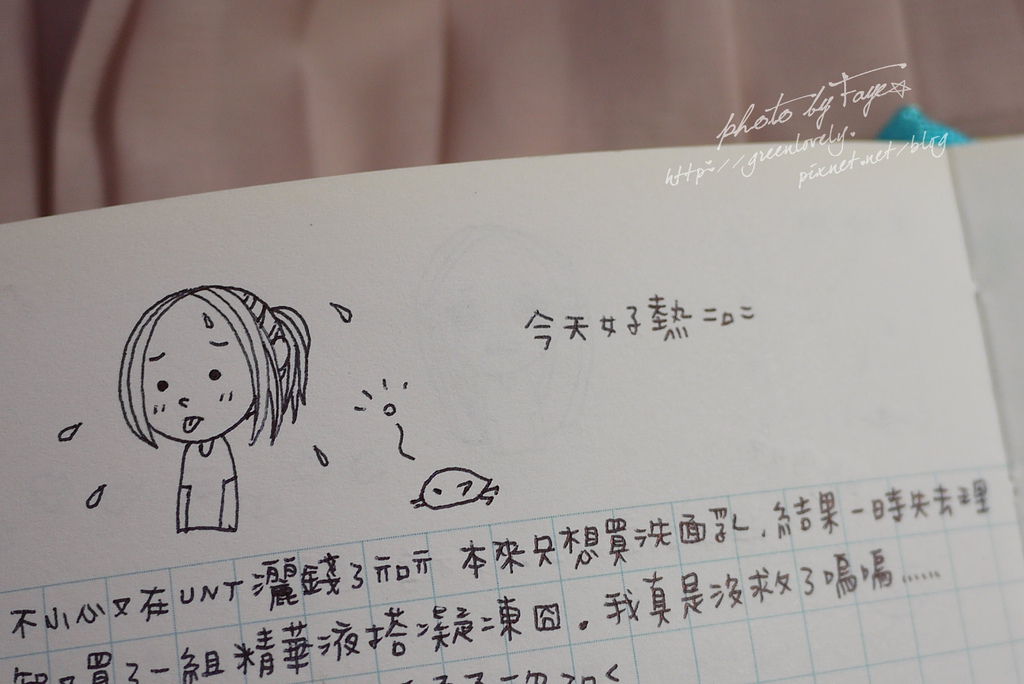 photo by Faye☆
http://greenlovely.
pixnet.net/blog
今天好熱=口=
不小心又在UNT灑錢了冏 本來只想買洗面乳，結果一時失去理
智又買了一組精華液搭凝凍囧。我真是沒救了嗚嗚……